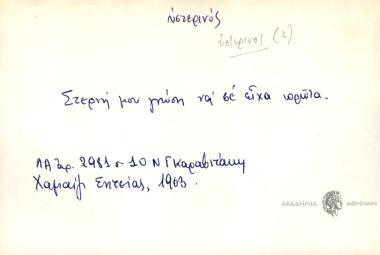 ὑστερινός
ὑστερινος (2)
Στερνή μου γνώση νά σέ εἶχα πρῶτα.
ΛΑ ἀρ. 2981 σ 10 Ν Γκαραβιτάκη
Χαμαίζι Σητείας, 1963.
ΑΚΑΔΗΜΙΑ ΑΘΗΝΩΝ